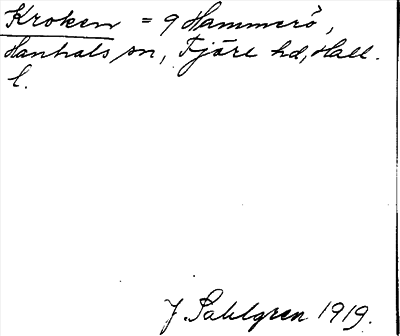 Kroken = 9 Hammerö,
Hanhals sn, Fjäre hd, Hall.
l.
J. Sahlgren 1919.